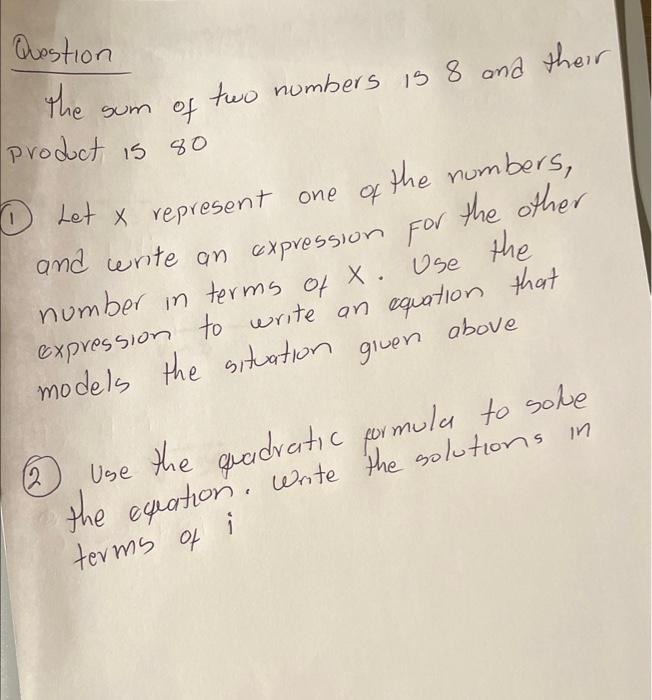 Question
The sum of two numbers is 8 and their
product is 80
① Let x represent one of the numbers,
and write an expression for the other
number in terms of x. Use the
expression to write an equation that
models the situation given above
② Use the quadratic formula to solve
the equation. Write the solutions in
terms of i